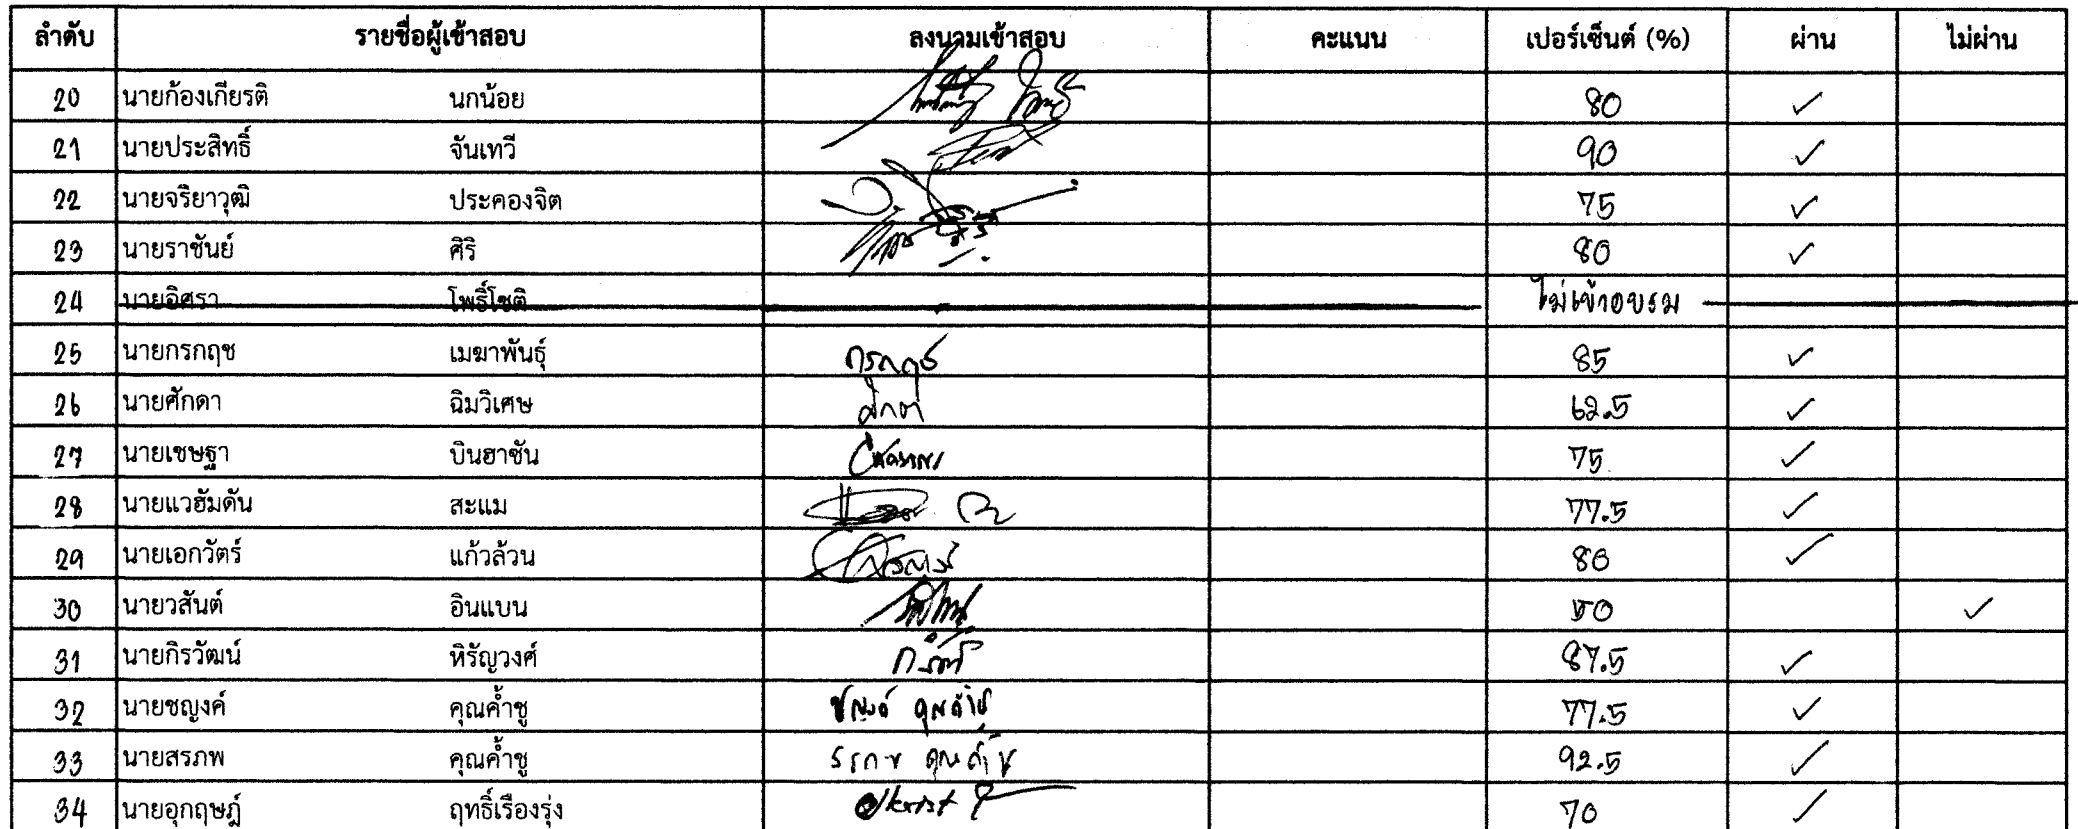 ลำดับ รายชื่อผู้เข้าสอบ ลงนามเข้าสอบ คะแนน เปอร์เซ็นต์ (%) ผ่าน ไม่ผ่าน
20 นายก้องเกียรติ นกน้อย 80 ✓
21 นายประสิทธิ์ จันเทวี 90 ✓
22 นายจริยาวุฒิ ประคองจิต 75 ✓
23 นายราชันย์ ศิริ 80 ✓
24 นายอิศรา โพธิ์โชติ ไม่เข้าอบรม
25 นายกรกฤช เมฆาพันธุ์ กรกฤช 85 ✓
26 นายศักดา ฉิมวิเศษ 62.5 ✓
27 นายเชษฐา บินฮาซัน 75 ✓
28 นายแวฮัมดัน สะแม 77.5 ✓
29 นายเอกวัตร์ แก้วล้วน 80 ✓
30 นายวสันต์ อินแบน 50 ✓
31 นายกิรวัฒน์ หิรัญวงศ์ 87.5 ✓
32 นายชญงค์ คุณค้ำชู ชญงค์ คุณค้ำชู 77.5 ✓
33 นายสรภพ คุณค้ำชู สรภพ คุณค้ำชู 92.5 ✓
34 นายอุกฤษฎ์ ฤทธิ์เรืองรุ่ง 70 ✓